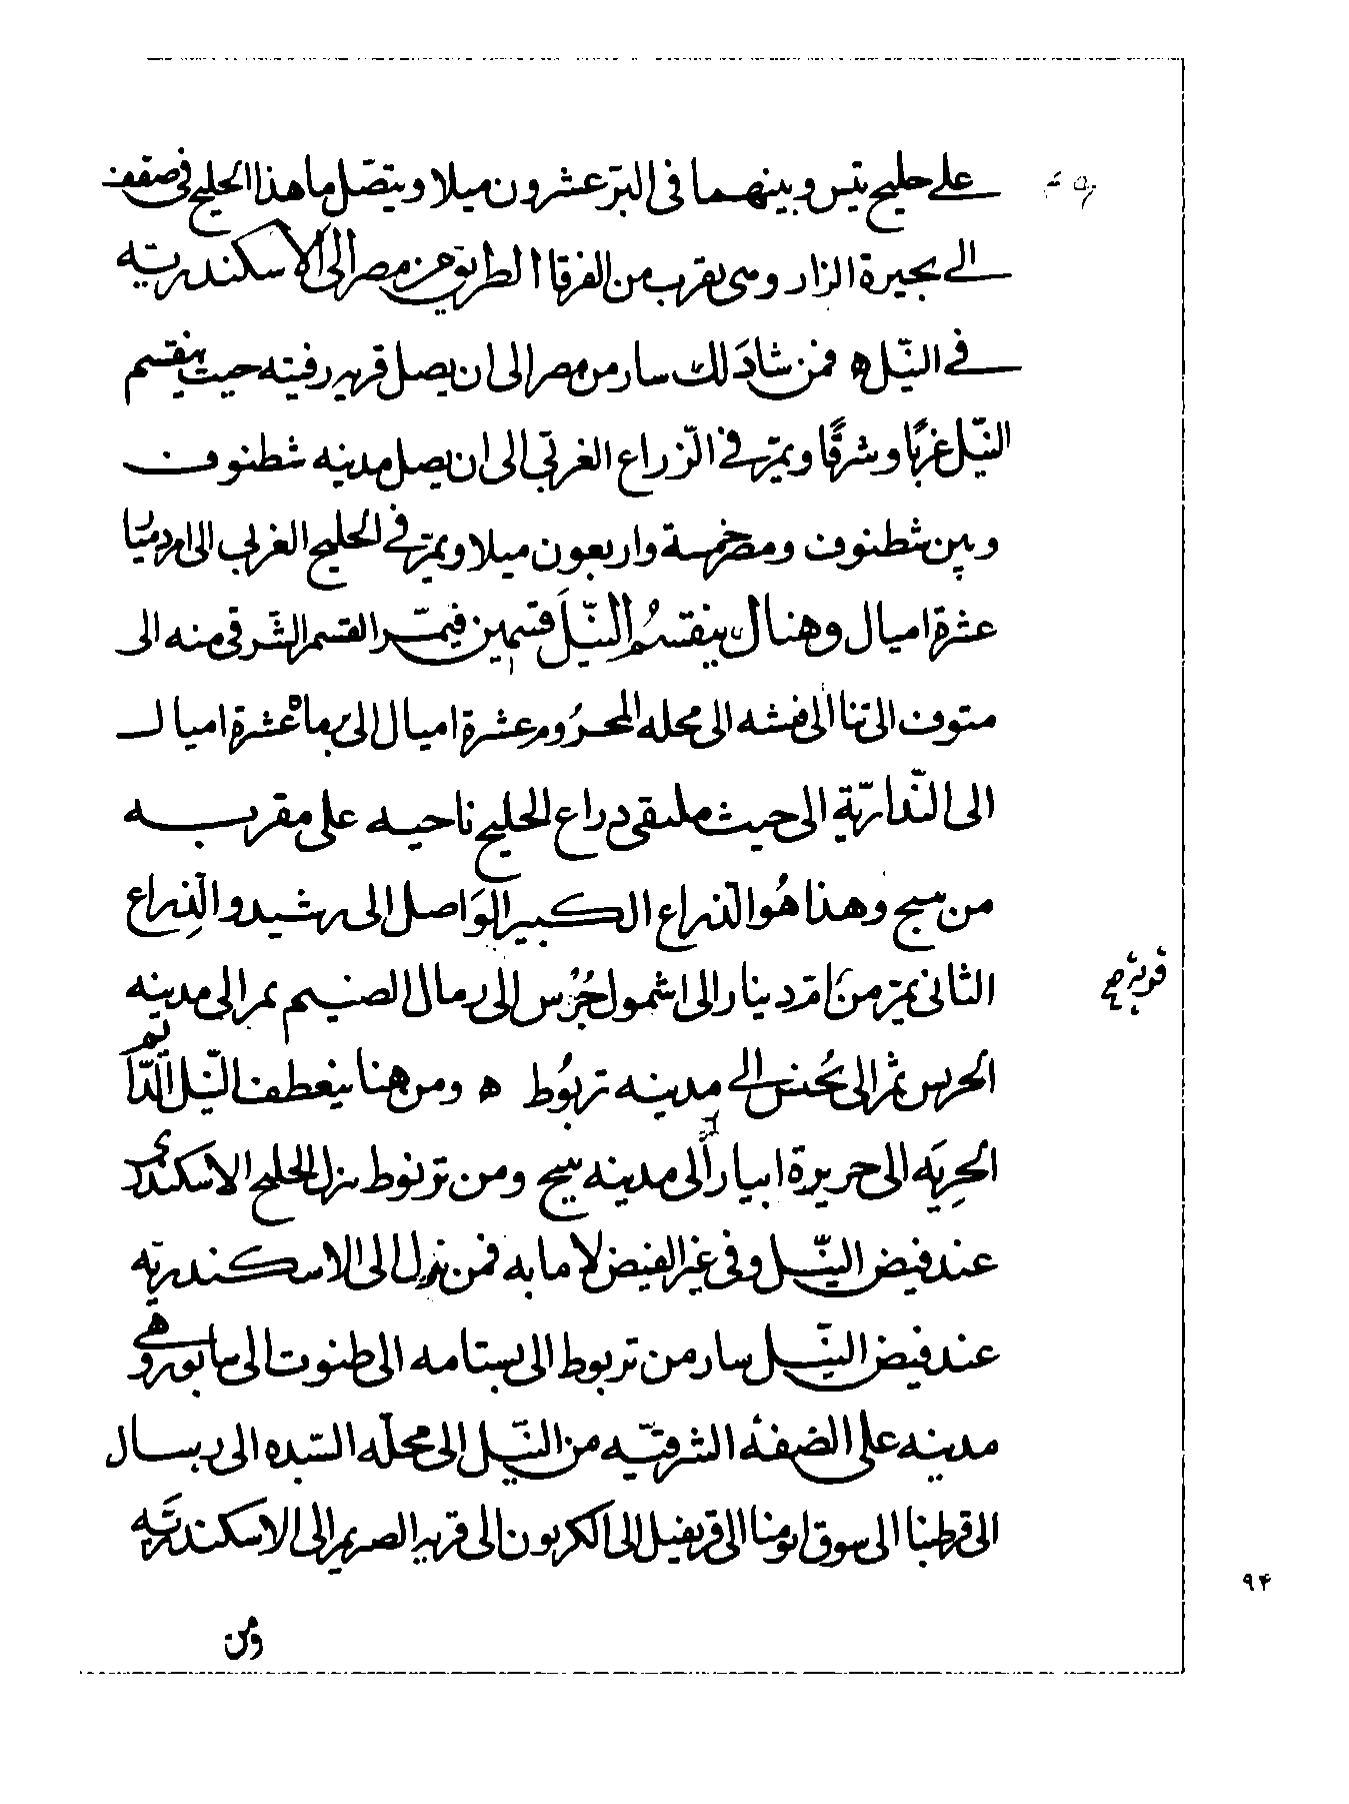 على خليج تنيس وبينهما فى البرّ عشرون ميلا ويتّصل ماهذا الخليج فى صقف
الى بحيرة الزار وهى بقرب من الفرقا الطريق من مصر الى الاسكندريّه
فى النّيل ه فمن شاذلك سار من مصر الى ان يصل قريه رفيته حيث ينقسم
النّيل غربًا وشرقًا ويمرّ فى الزّراع الغربّى الى ان يصل مدينه شطنوف
وبين شطنوف ومصر خمسة واربعون ميلا ويمرّ فى الخليج الغربى الى امرد ميّا
عشرة اميال وهناك ينقسمُ النّيلَ قسمين فيمّر القسم الشّرقى منه الى
متوف الى تنا الى فيشه الى محله المحرُوم عشرة اميال الى يرماه عشرة اميال
الى النّداريّة الى حيث ملتقى دراع الخليج ناحيه على مقربه
من سبح وهذا هُو الذراع الكبير الوَاصل الى رشيد والذِراع
الثانى يمرّ من امّ دينار الى اشمول جُرُس الى رمال الصنيم يمر الى مدينه
الحريس ثمّر الى بُحنس الى مدينه تربُوط ه ومن هنا ينعطف النّيل الدّا
يم
الحرِيَه الى جريرة ابيار الى مدينه بيج ومن ترنوط ينزل الخليج الاسكندرى
عند فيض النّيل وفى غير الفيض لا ما به فمن نزل الى الاسكندريّه
عند فيض النّيل سار من تربوط الى بستامه الى طنوت الى سابور وهى
مدينه على الضفئه الشرقيّه من النّيل الى محلّه السّبده الى ربسال
الى قرطبنا الى سوق ابومنا الى قريفيل الى الكريون الى قريه الصريم الى الاسكندريَّه
ومن
٩۴